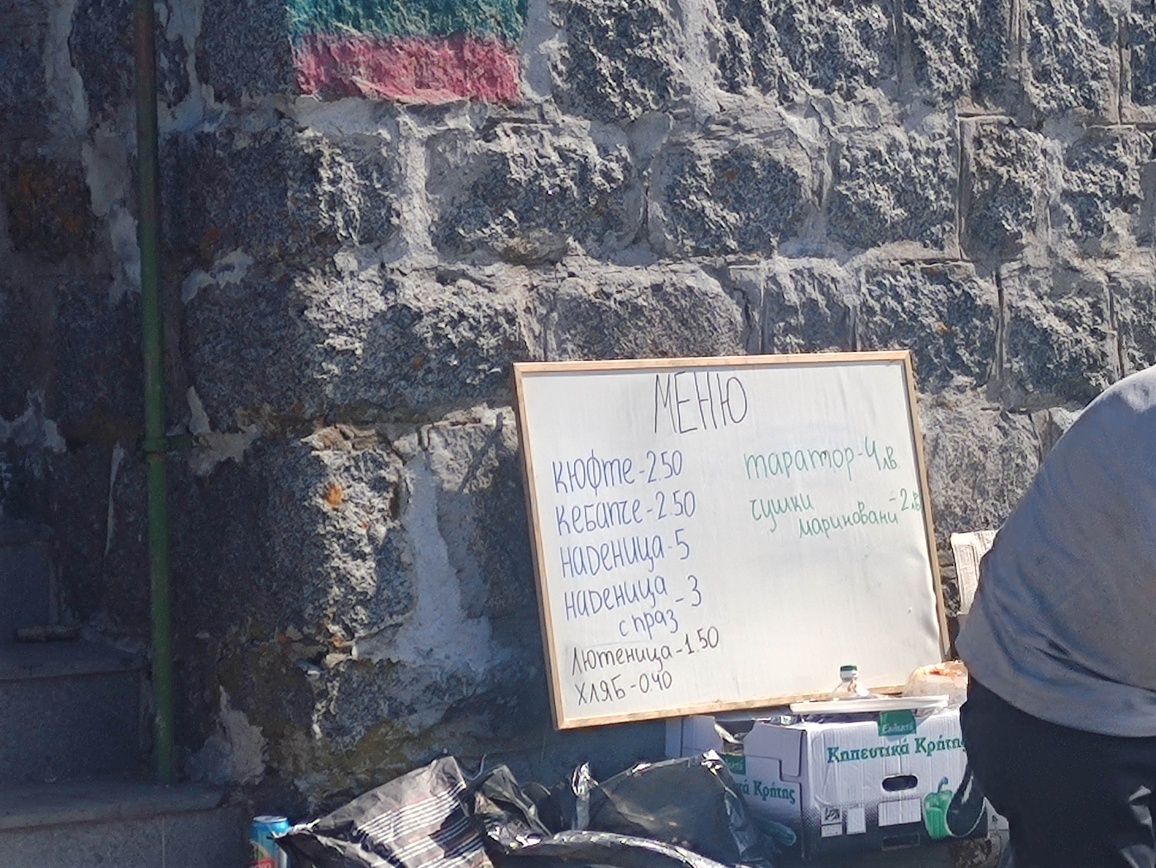 МЕНЮ
КЮФТЕ - 2.50
КЕБАПЧЕ - 2.50
НАДЕНИЦА - 5
НАДЕНИЦА - 3
С ПРАЗ
ЛЮТЕНИЦА - 1.50
ХЛЯБ - 0.40
таратор - 4 лв.
чушки
мариновани - 2 лв
Κηπευτικά Κρήτης
ά Κρήτης